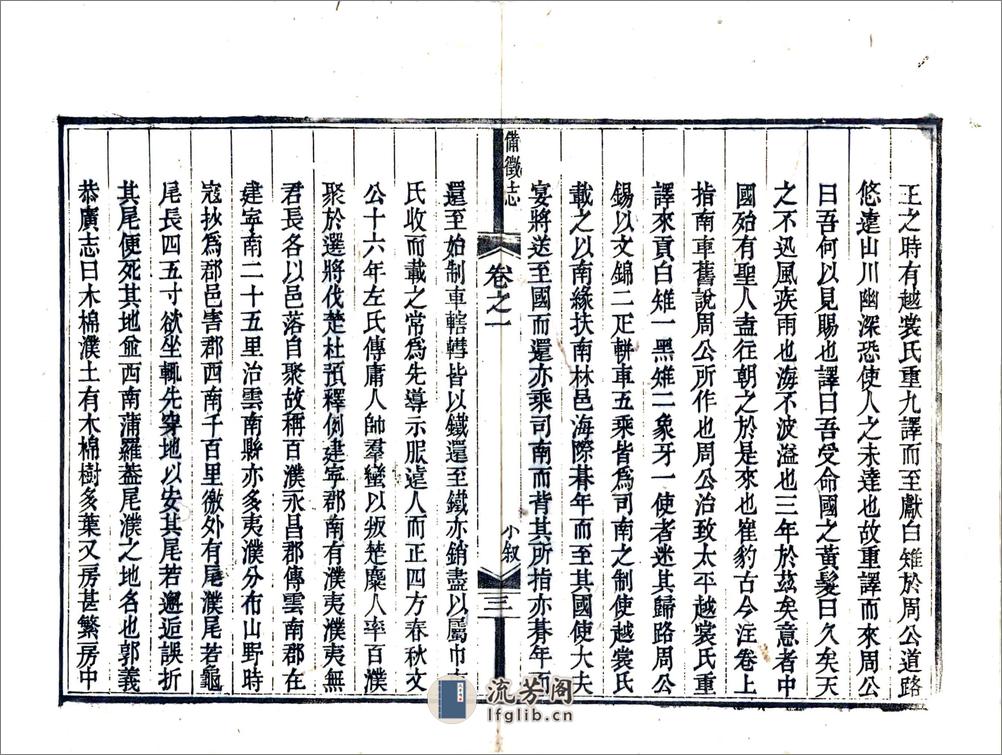 王之時有越裳氏重九譯而至獻白雉於周公道路
悠遠山川幽深恐使人之未達也故重譯而來周公
曰吾何以見賜也譯曰吾受命國之黃髮曰久矣天
之不迅風疾雨也海不波溢也三年於茲矣意者中
國殆有聖人盍往朝之於是來也崔豹古今注卷上
指南車舊說周公所作也周公治致太平越裳氏重
譯來貢白雉一黑雉二象牙一使者迷其歸路周公
錫以文錦二疋軿車五乘皆爲司南之制使越裳氏
載之以南緣扶南林邑海際朞年而至其國使大夫
宴將送至國而還亦乘司南而背其所指亦朞年而
備徵志
卷之一
小叙
三
還至始制車轄轊皆以鐵還至鐵亦銷盡以屬巾車
氏收而載之常爲先導示服遠人而正四方春秋文
公十六年左氏傳庸人帥羣蠻以叛楚麇人率百濮
聚於選將伐楚杜預釋例建寧郡南有濮夷濮夷無
君長各以邑落自聚故稱百濮永昌郡傳雲南郡在
建寧南二十五里治雲南縣亦多夷濮分布山野時
寇抄爲郡邑害郡西南千百里徼外有尾濮尾若龜
尾長四五寸欲坐輒先穿地以安其尾若邂逅誤折
其尾便死其地並西南蒲羅葢尾濮之地名也郭義
恭廣志曰木棉濮土有木棉樹多葉又房甚繁一房中
流芳阁
lfglib.cn